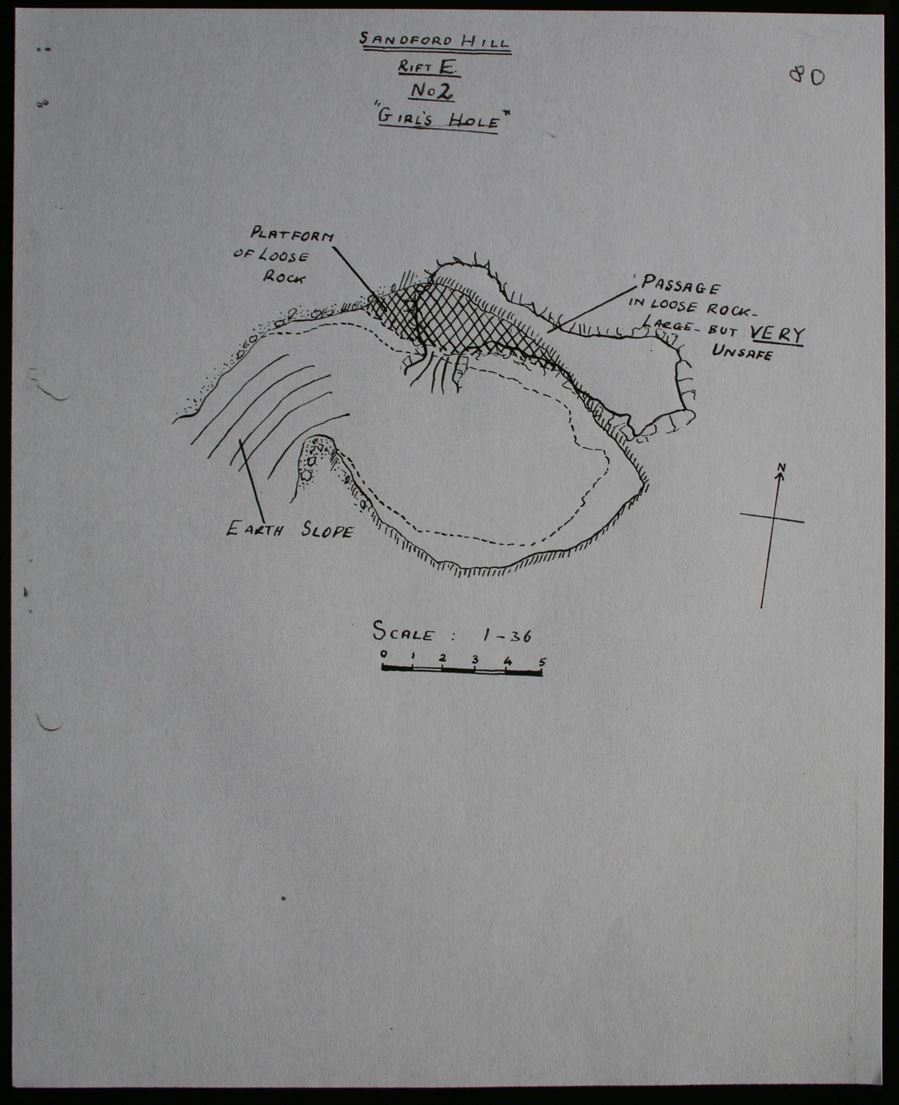 SANDFORD HILL
RIFT E.
No2
"GIRL'S HOLE"
80
PLATFORM
OF LOOSE
ROCK
PASSAGE
IN LOOSE ROCK-
LARGE- BUT VERY
UNSAFE
N
EARTH SLOPE
SCALE : 1-36
0 1 2 3 4 5